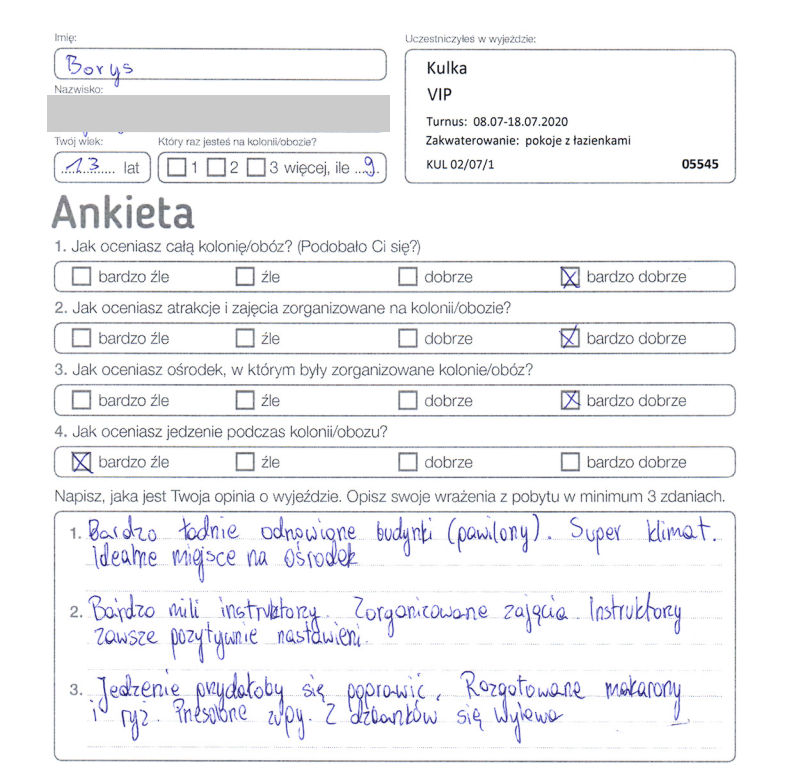 Imię:
Borys
Nazwisko:
Twój wiek:
13 lat
Który raz jesteś na kolonii/obozie?
1 2 3 więcej, ile 9.
Uczestniczyłeś w wyjeździe:
Kulka
VIP
Turnus: 08.07-18.07.2020
Zakwaterowanie: pokoje z łazienkami
KUL 02/07/1 05545
Ankieta
1. Jak oceniasz całą kolonię/obóz? (Podobało Ci się?)
bardzo źle źle dobrze bardzo dobrze
2. Jak oceniasz atrakcje i zajęcia zorganizowane na kolonii/obozie?
bardzo źle źle dobrze bardzo dobrze
3. Jak oceniasz ośrodek, w którym były zorganizowane kolonie/obóz?
bardzo źle źle dobrze bardzo dobrze
4. Jak oceniasz jedzenie podczas kolonii/obozu?
bardzo źle źle dobrze bardzo dobrze
Napisz, jaka jest Twoja opinia o wyjeździe. Opisz swoje wrażenia z pobytu w minimum 3 zdaniach.
1. Bardzo ładnie odnowione budynki (pawilony). Super klimat.
Idealne miejsce na ośrodek
2. Bardzo mili instruktorzy. Zorganizowane zajęcia. Instruktorzy
zawsze pozytywnie nastawieni.
3. Jedzenie przydałoby się poprawić. Rozgotowane makarony
i ryż. Przesolone zupy. Z dzbanków się wylewa